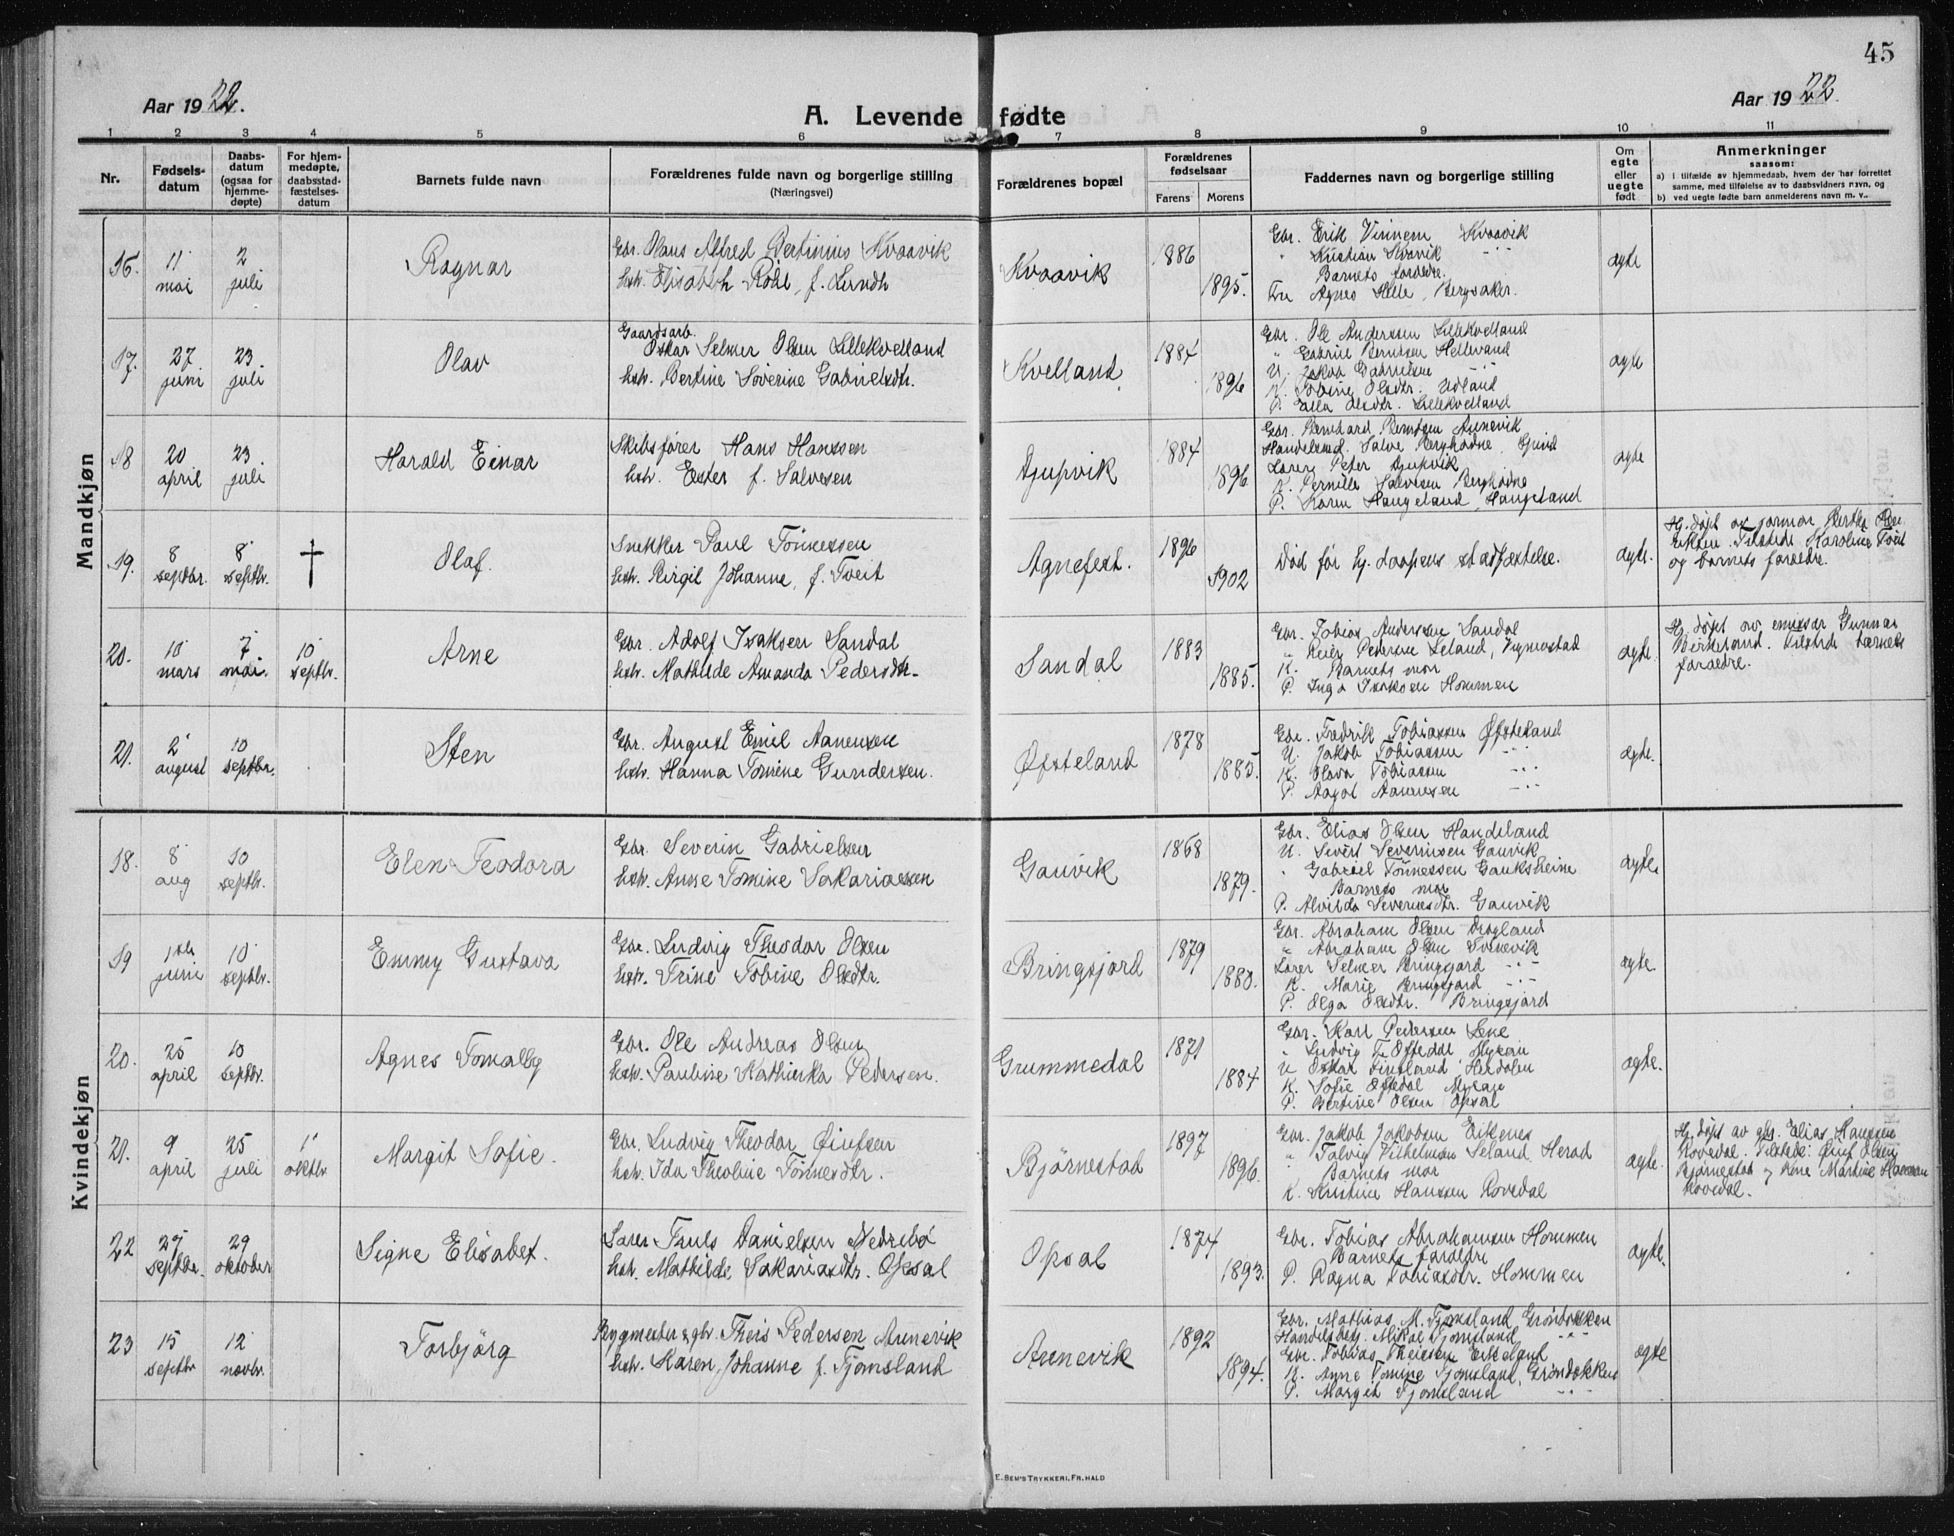 45
Aar 1922.
A. Levende fødte
Aar 1922.
1 2 3 4 5 6 7 8 9 10 11
Nr.
Fødsels-
datum
Daabs-
datum
(ogsaa for
hjemme-
døpte)
For hjem-
medøpte,
daabsstad-
fæstelses-
datum
Barnets fulde navn
Forældrenes fulde navn og borgerlige stilling
(Næringsvei)
Forældrenes bopæl
Forældrenes
fødselsaar
Farens Morens
Faddernes navn og borgerlige stilling
Om
egte
eller
uegte
født
Anmerkninger
saasom:
a) i tilfælde av hjemmedaab, hvem der har forrettet
samme, med tilføielse av to daabsvidners navn, og
b) ved uegte fødte barn anmelderens navn m. v.
Mandkjøn
16. 11 mai 2 juli
Ragnar
Gbr. Hans Alfred Bertinius Kvaavik
hstr. Elisabeth Rödl, f. Lundh
Kvaavik
1886
1895.
Gbr. Erik Vinnem Kvaavik
" Kristian Kvavik
Barnets foreldre
Fru Agnes Helle, Bergsaker.
egte
17. 27 juni 23 juli
Olav
Gaardsarb.
Oskar Selmer Olsen Lillekvelland
hstr. Bertine Severine Gabrielsdtr.
Kvelland
1884
1896
Gbr. Ole Anderssen Lillekvelland
" Gabriel Berntsen Hellevand
U. Jakob Gabrielsen
K. Tobine Olsdtr. Udland
P. Ella Olsdtr. Lillekvelland
egte
18 20 april 23 juli
Harald Einar
Skibsfører Hans Hanssen
hstr. Ester f. Salvesen
Djupvik
1884
1896
Gbr. Bernhard Berntsen Aunevik
Handelsmd. Salve Berghødne,
Lærer Peter Djupvik
K. Pernille Salvesen Berghødne
P. Karen Haugeland, Haugeland
egte
19. 8 septbr. 8 septbr. †
Olaf.
Snekker Paul Tönnessen
hstr. Birgit Johanne, f. Tveit
Agnefest.
1896
1902
Död för hj. daapens stadfæstelse.
egte.
Hj. döpt av jormor Bertha
Eriksen. Tilstede Karoline Tveit
og barnets foreldre.
20. 10 mars 7 mai. 10 septbr.
Arne
Gbr. Adolf Isaksen Sandal
hstr. Mathilde Amanda Pedersdtr.
Sandal
1883
1885.
Gbr. Tobias Anderssen Sandal
" Reier Pedersen Leland, Vigmostad
K. Barnets mor
P. Inga Isaksen Hommen
egte.
Hj. döpt av emissær Gunnar
Birkeland. Tilstede barnets
foreldre.
21. 2 august 10 septbr.
Sten
Gbr. August Emil Aanensen
hstr. Hanna Tomine Gundersen.
Øfsteland
1878
1885.
Gbr. Fredrik Tobiassen Øfsteland
U. Jakob Tobiassen
K. Olava Tobiassen
P. Aagot Aanensen
egte.
Kvindekjøn
18. 8 aug 10 septbr.
Elen Teodora
Gbr. Severin Gabrielsen
hstr. Anne Tomine Sakariassen
Gauvik
1868
1879.
Gbr. Elias Olsen Handeland
U. Sivert Severinsen Gauvik
" Gabriel Tönnessen Gauksheine
Barnets mor
P. Alvilda Severinsdtr. Gauvik
egte.
19 1ste juni 10 septbr.
Emmy Gustava
Gbr. Ludvig Theodor Olsen
hstr. Trine Tobine Olsdtr.
Bringsjord
1879
1880.
Gbr. Abraham Olsen Drogland
" Abraham Olsen
Lærer Selmer Bringsjord
K. Marie Bringsjord
P. Olga Olsdtr. Bringsjord
egte.
20. 25 april 10 septbr.
Agnes Tomalby
Gbr. Ole Andreas Olsen
hstr. Pauline Kathinka Pedersen.
Grummedal
1871
1884
Gbr. Karl Pedersen Lene
" Ludvig T. Oftedal, Myran
U Oskar Finsland, Herdalen
K. Sofie Oftedal Myran
P. Bertine Olsen Opsal
egte.
21. 9 april 25 juli 1 oktbr.
Margit Sofie.
Gbr. Ludvig Theodor Öiufsen
hstr. Ida Theoline Tönnesdtr.
Björnestad
1897
1896.
Gbr. Jakob Jakobsen Eikenes
" Tolvig Vilhelmsen Seland, Herad
Barnets mor
K. Kristine Hanssen Rovedal
egte.
Hj. döpt av gbr. Elias Hanssen
Rovedal. Tilstede: Öiuf Olsen
Björnestad og Ane Martine Hanssen
Rovedal.
22 29 septbr. 29 oktober
Signe Elisabet.
Lærer Truls Danielsen Nedrebö
hstr. Mathilde Sakariasdtr. Opsal
Opsal
1874
1893.
Gbr. Tobias Abrahamsen Hommen
Barnets foreldre
P. Ragna Tobiasdtr. Hommen
egte.
23 15 septbr 12 novbr.
Torbjörg
Bygmester & gbr. Theis Pedersen Aunevik
hstr. Karen Johanne f. Tjomsland
Aunevik
1892
1894.
Gbr. Mathias M. Tjomsland, Gröndokken
Handelsbetj. Mikal Tjomsland
Gbr. Tobias Theisen Eikeland
K. Anne Tomine Tjomsland, Gröndokken
P. Margit Tjomsland
egte
E. SEM'S TRYKKERI, FR.HALD